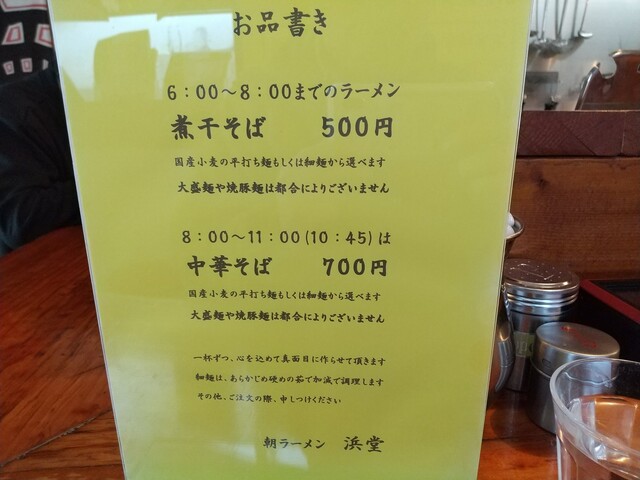 お品書き
6:00～8:00までのラーメン
煮干そば 500円
国産小麦の平打ち麺もしくは細麺から選べます
大盛麺や焼豚麺は都合によりございません
8:00～11:00(10:45)は
中華そば 700円
国産小麦の平打ち麺もしくは細麺から選べます
大盛麺や焼豚麺は都合によりございません
一杯ずつ、心を込めて真面目に作らせて頂きます
細麺は、あらかじめ硬めの茹で加減で調理します
その他、ご注文の際、申しつけください
朝ラーメン 浜堂